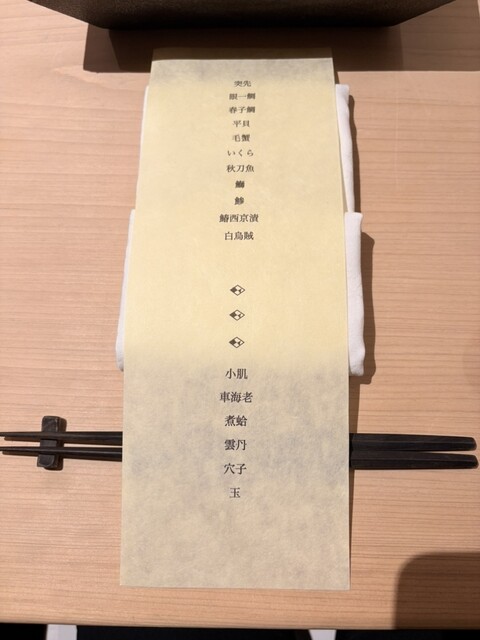 突先
眼一鯛
春子鯛
平貝
毛蟹
いくら
秋刀魚
鰤
鯵
鰆西京漬
白烏賊
小肌
車海老
煮蛤
雲丹
穴子
玉